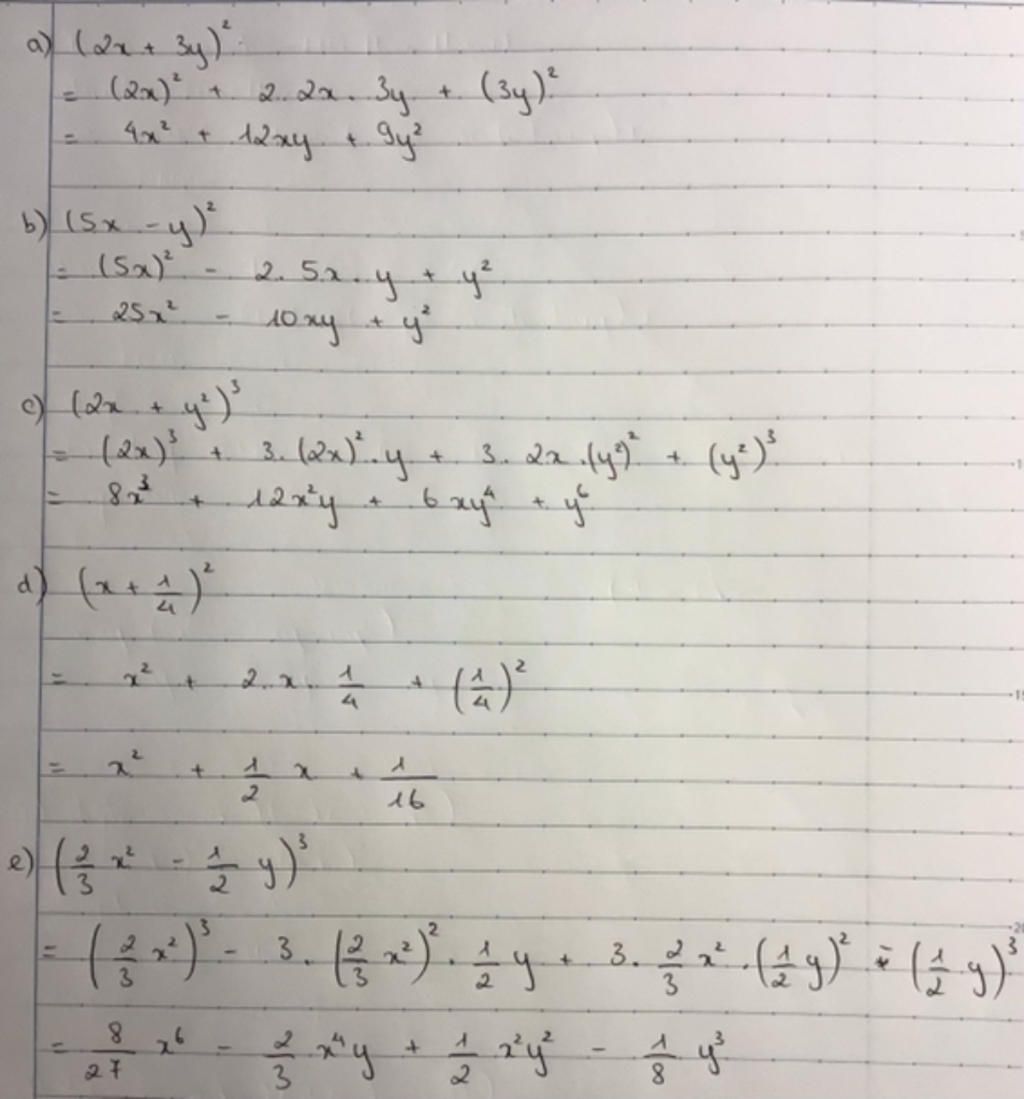 a) (2x + 3y)²
= (2x)² + 2. 2x. 3y + (3y)²
= 4x² + 12xy + 9y²
b) (5x - y)²
= (5x)² - 2. 5x. y + y²
= 25x² - 10xy + y²
c) (2x + y²)³
= (2x)³ + 3. (2x)². y + 3. 2x. (y²)² + (y²)³
= 8x³ + 12x²y + 6xy⁴ + y⁶
d) (x + 1/4)²
= x² + 2. x. 1/4 + (1/4)²
= x² + 1/2 x + 1/16
e) (2/3 x² - 1/2 y)³
= (2/3 x²)³ - 3. (2/3 x²)². 1/2 y + 3. 2/3 x². (1/2 y)² - (1/2 y)³
= 8/27 x⁶ - 2/3 x⁴y + 1/2 x²y² - 1/8 y³